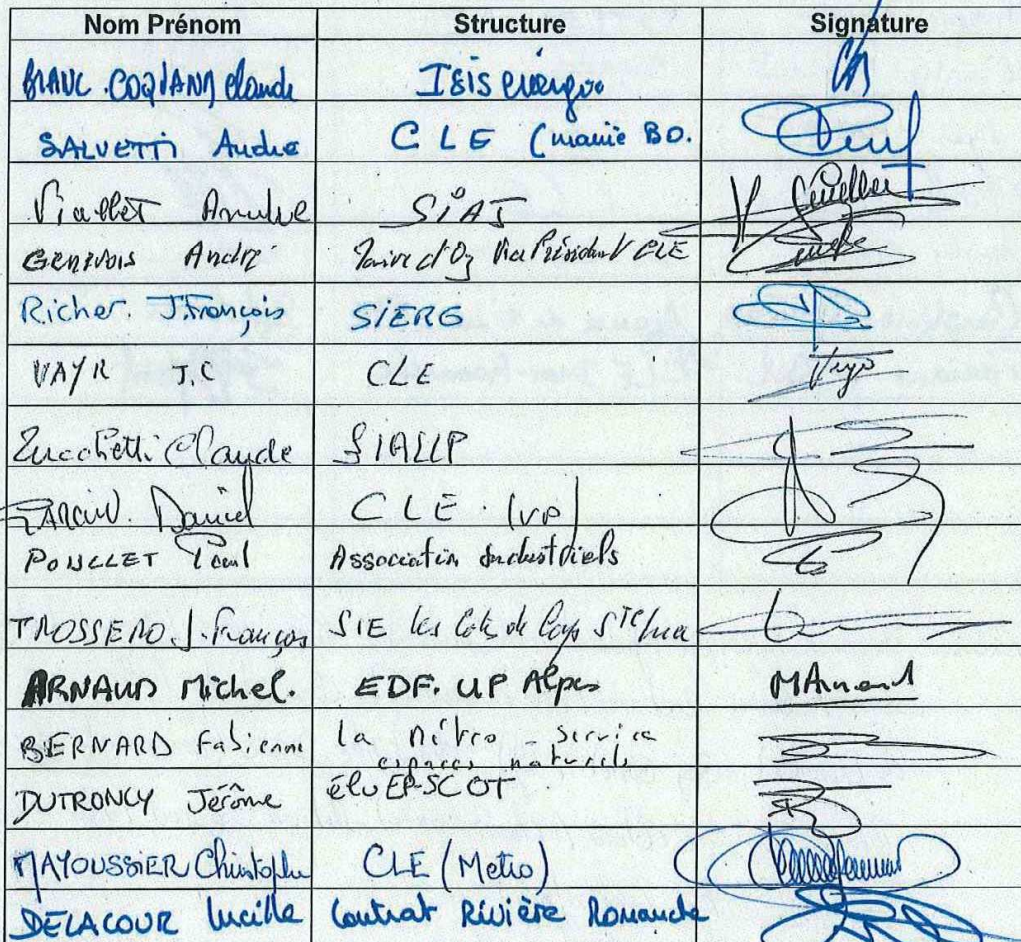 Nom Prénom Structure Signature
BLANC-COQUAND Claude Isis énergie
SALVETTI André CLE (mairie BO.
Viallet André SIAJ
GENEVOIS André Maire d'Oz Vice Président CLE
Richer J.François SIERG
VAYR J.C CLE
Zucchetti Claude SIALLP
Daniel CLE (VP)
Paul Association Industriels
TROSSERO J-François SIE les
ARNAUD Michel. EDF. UP Alpes MArnaud
BERNARD Fabienne la métro - service
espaces naturels
DUTRONCY Jérôme élu EP-SCOT
MAYOUSSIER Christophe CLE (Metro)
DELACOUR Lucille Contrat Rivière Romanche